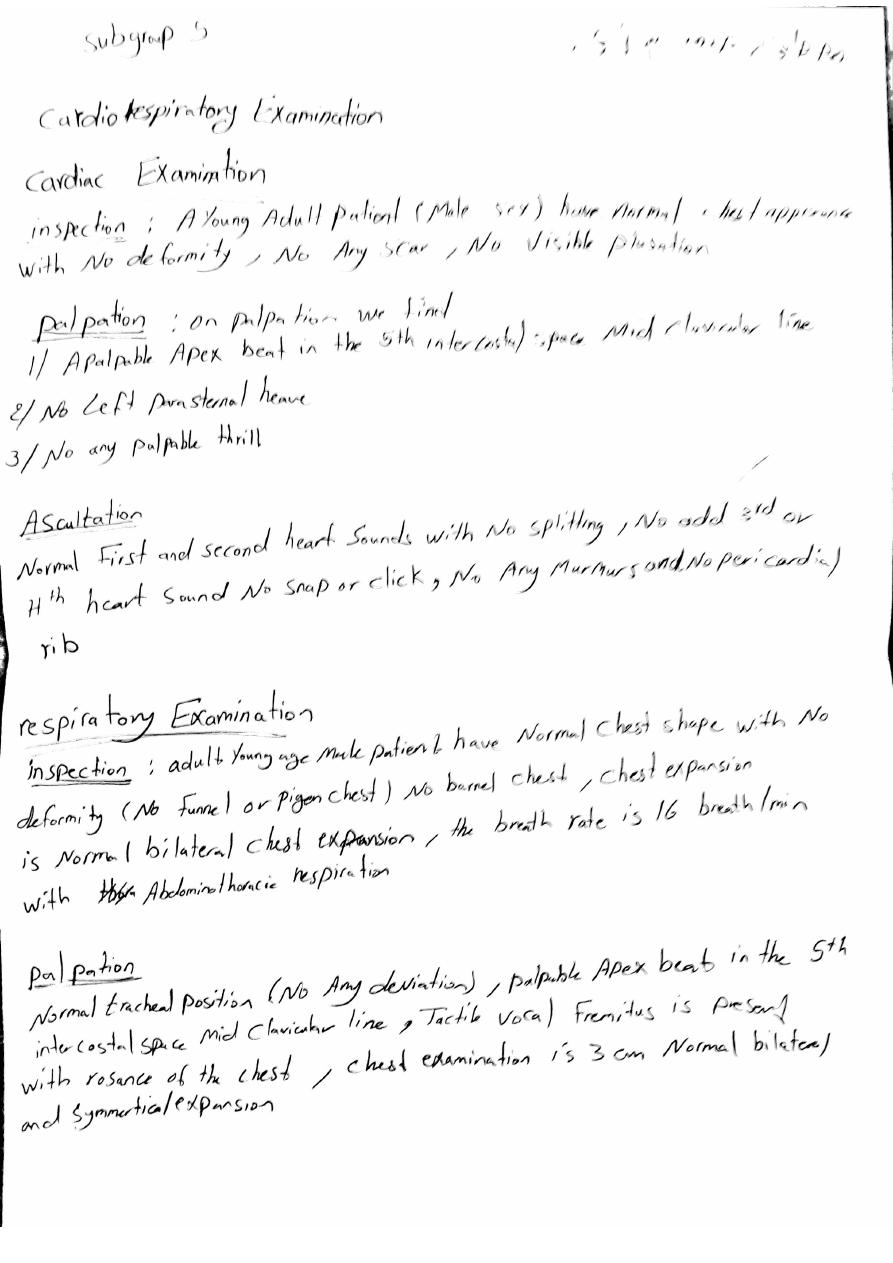 Subgroup 5
Cardiorespiratory Examination
Cardiac Examination
inspection : A Young Adult patient (Male sex) have Normal chest apperance
with No deformity , No Any scar , No Visible plusation
palpation : on palpation we find
1/ A palpable Apex beat in the 5th intercostal space Mid clavicular line
2/ No Left parasternal heave
3/ No any palpable thrill
Ascultation
Normal First and second heart Sounds with No splitting , No add 3rd or
4th heart Sound No snap or click , No Any Murmurs and No pericardial
rib
respiratory Examination
inspection : adult Young age Male patient have Normal chest shape with No
deformity (No funnel or pigen chest) No barrel chest , chest expansion
is Normal bilateral chest expansion , the breath rate is 16 breath/min
with Abdominothoracic respiration
palpation
Normal tracheal position (No Any deviation) , palpable Apex beat in the 5th
intercostal space Mid Clavicular line , Tactile Vocal Fremitus is present
with rosance of the chest , chest examination is 3 cm Normal bilateral
and Symmertical expansion